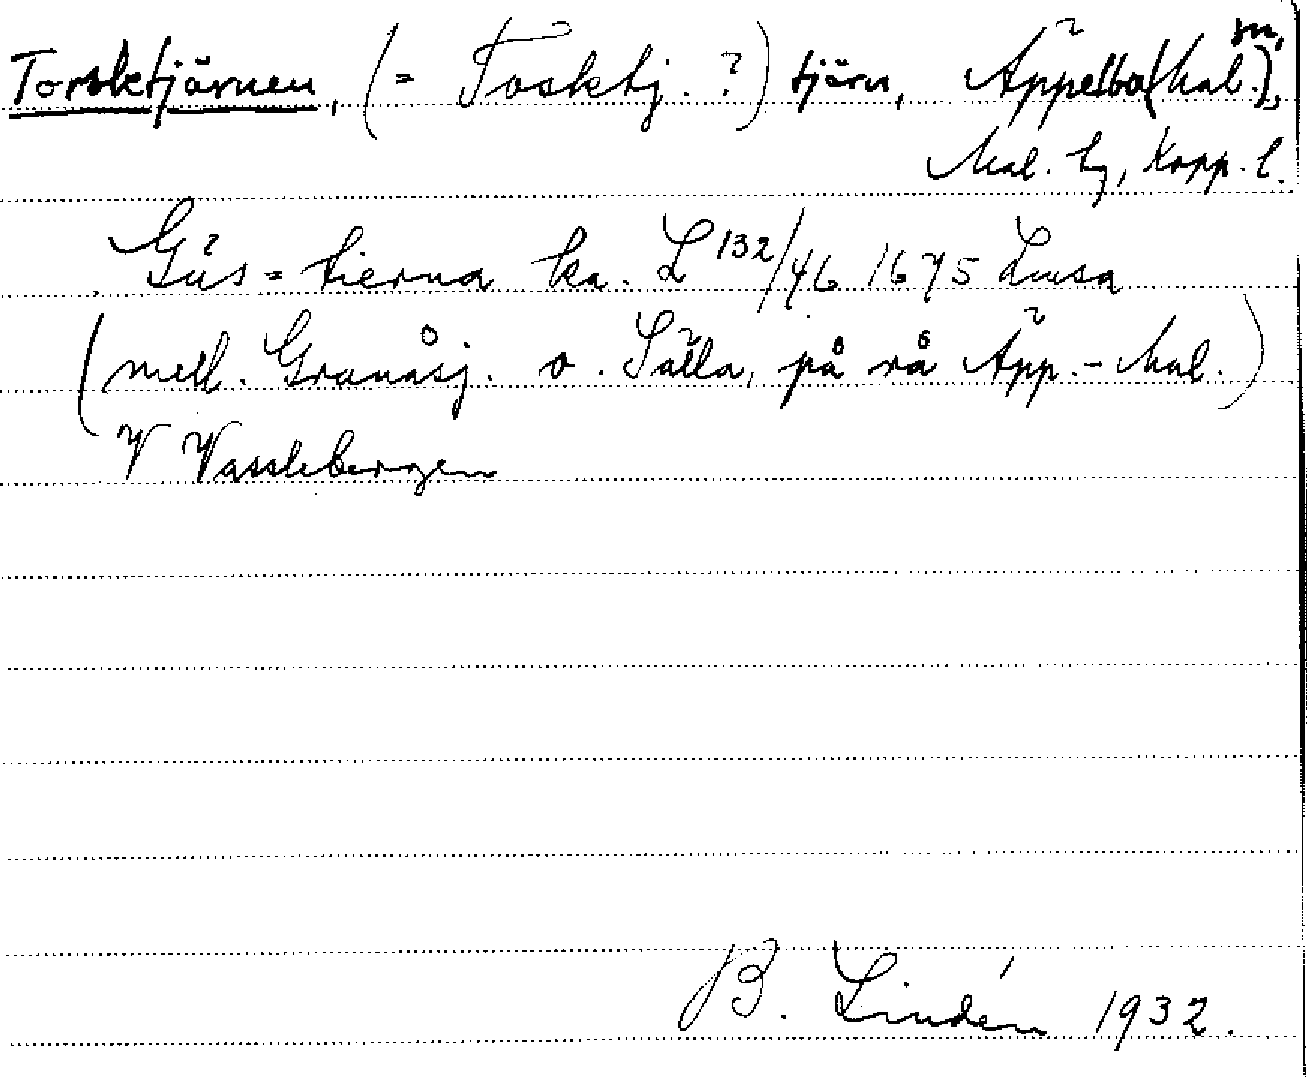 Torsktjärnen, (= Tosktj. ?) tjärn, Äppelbo (Mal.) sn,
Mal. tg, Kopp. l.
Gås=tierna ka. L 132/46 1675 Limsa
(mell. Granåsj. o. Sälla, på rå Äpp.-Mal.)
V Vasslebergen
B. Lindén 1932.